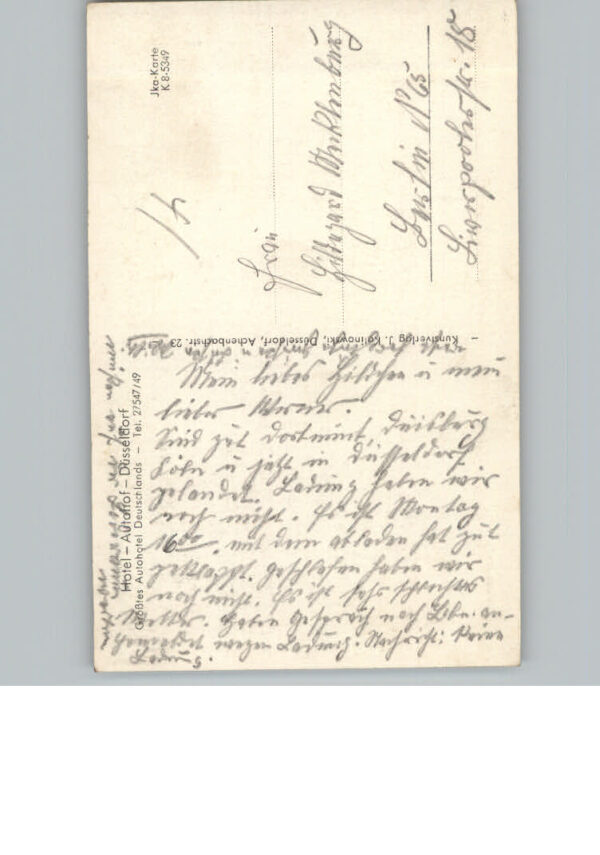 Jka-Karte
K 8-5349
Frau
Hildegard Mecklenburg
Berlin N 65
Liverpooler str. 15
– Kunstverlag J. Kolinowski, Düsseldorf, Achenbachstr. 23
Hotel – Autohof – Düsseldorf
Größtes Autohotel Deutschlands – Tel. 27547/49
Mein liebes Hilschen u mein
lieber Werner.
Sind zut Dortmund, Duisburg
Cöln u jetzt in Düsseldorf
gelandet. Ladung haben wir
noch nicht. Es ist Montag
16⁰⁰, mit dem abladen hat zut
geklappt. Geschlafen haben wir
noch nicht. Es ist sehr schlechtes
Wetter. Haben Gespräch nach Bln. an-
gemeldet wegen Ladung. Nachricht: Keine
Ladung.